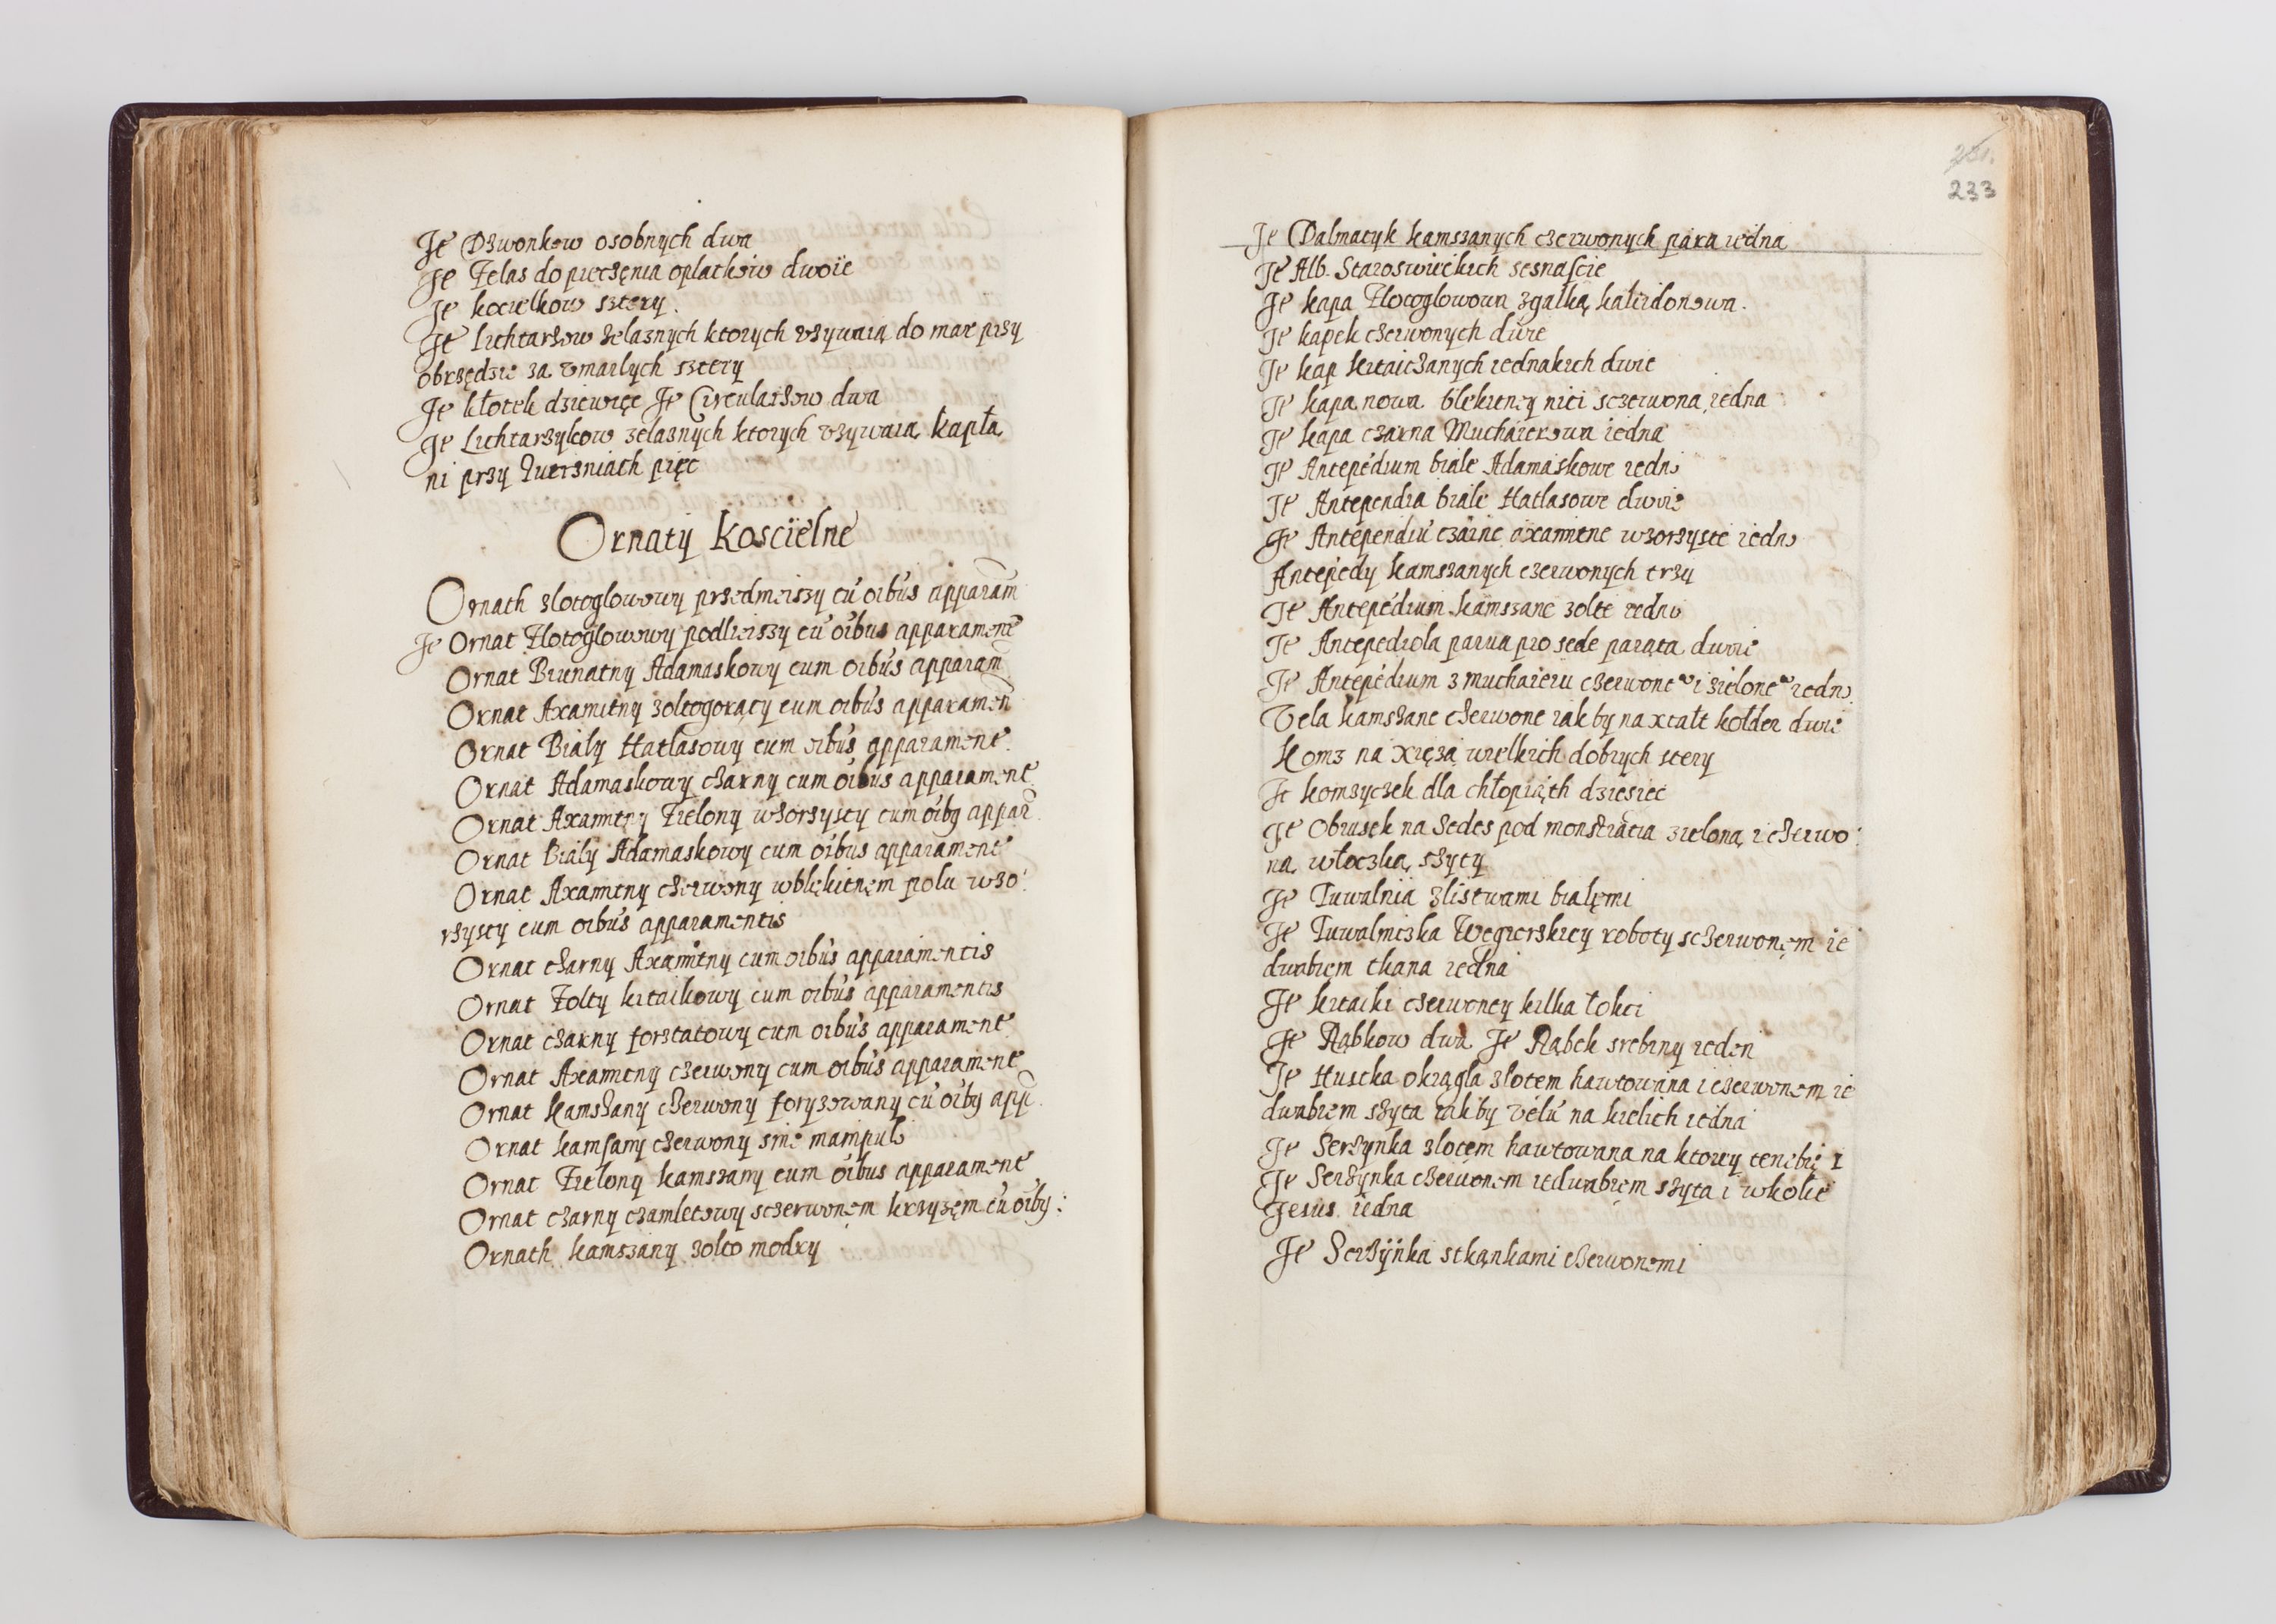 Ite Dzwonkow osobnych dwa
Ite Zelas do pieczęnia oplatkow dwoie
Ite kocielkow sztery.
Ite Lichtarzow zelaznych ktorych vzywaią do mar przy
obrzędzie za vmarlych sztery
Ite kłotek dziewięc Ite Circularzow dwa
Ite Lichtarzykow zelaznych ktorych vzywaią kapła
ni przy Iutrzniach pięc
Ornaty Koscielne
Ornath zlotoglowowy przednieiszy cū oibus apparam
Ite Ornat Zlotoglowowy podlieiszy cū oibus apparament
Ornat Brunatny Adamaskowy cum oibus apparam
Ornat Axamitny zoltogorący cum oibus apparamen
Ornat Biały Hatlasowy cum oibus apparament
Ornat Adamaskowy czarny cum oibus apparament
Ornat Axamitny Zielony wzorzysty cum oibq appar
Ornat Biały Adamaskowy cum oibus apparament
Ornat Axamitny czerwony wblękitnęm polu wzo:
rzysty cum oibus apparamentis
Ornat czarny Axamitny cum oibus apparamentis
Ornat Zolty kitaikowy cum oibus apparamentis
Ornat czarny forstatowy cum oibus apparament
Ornat Axamitny czerwony cum oibus apparament
Ornat kamszany czerwony foryzowany cū oibq app
Ornat kamsany czerwony sine manipuli
Ornat Zielony kamszany cum oibus apparament
Ornat czarny czamletowy sczerwonem krzyzęm cū oibq:
Ornath kamszany zolto modry
231.
233
Ite Dalmatyk kamszanych czerwonych para iedna
Ite Alb. Staroswieckich sesnascie
Ite kapa Zlotoglowowa zgałką kalcidonowa.
Ite kapek czerwonych dwie
Ite kap kitaiczanych iednakich dwie
Ite kapa nowa blekitney nici sczerwoną iedna
Ite kapa czarna Muchaierowa iedna
Ite Antepēdium białe Adamaskowe iedno
Ite Antependia białe Hatlasowe dwie
Ite Antependiū czarne axamitne wzorzyste iedno
Antepēdy kamszanych czerwonych trzy
Ite Antepēdium kamszane zolte iedno
Ite Antepediola parua pro sede parata dwie
Ite Antepēdium z muchaieru czerwone° i zielone° iedno
Vela kamszane czerwone iakby na xtałt kołder dwie
Komz na xięzą wielkich dobrych stery
Ite komzyczek dla chłopiąth dziesiec
Ite Obrusek na Sedes pod monstrācia zieloną i czerwo:
ną włoczką szyty
Ite Tuwalnia zlistwami białęmi
Ite Tuwalniczka Węgierskiey roboty sczerwonęm ie
dwabięm tkana iedna
Ite kitaiki czerwoney kilka łokci
Ite Rąbkow dwa Ite Rąbek srebrny ieden
Ite Hustka okrągła zlotem hawtowana i czerwonem ie
dwabiem szyta iakby velū na kielich iedna
Ite Serzynka zlotem hawtowana na ktorey tenebrę 1
Ite Serzynka czerwonem iedwabięm szyta i wkołie
Jesus iedna
Ite Serzynka stkąnkami czerwonemi